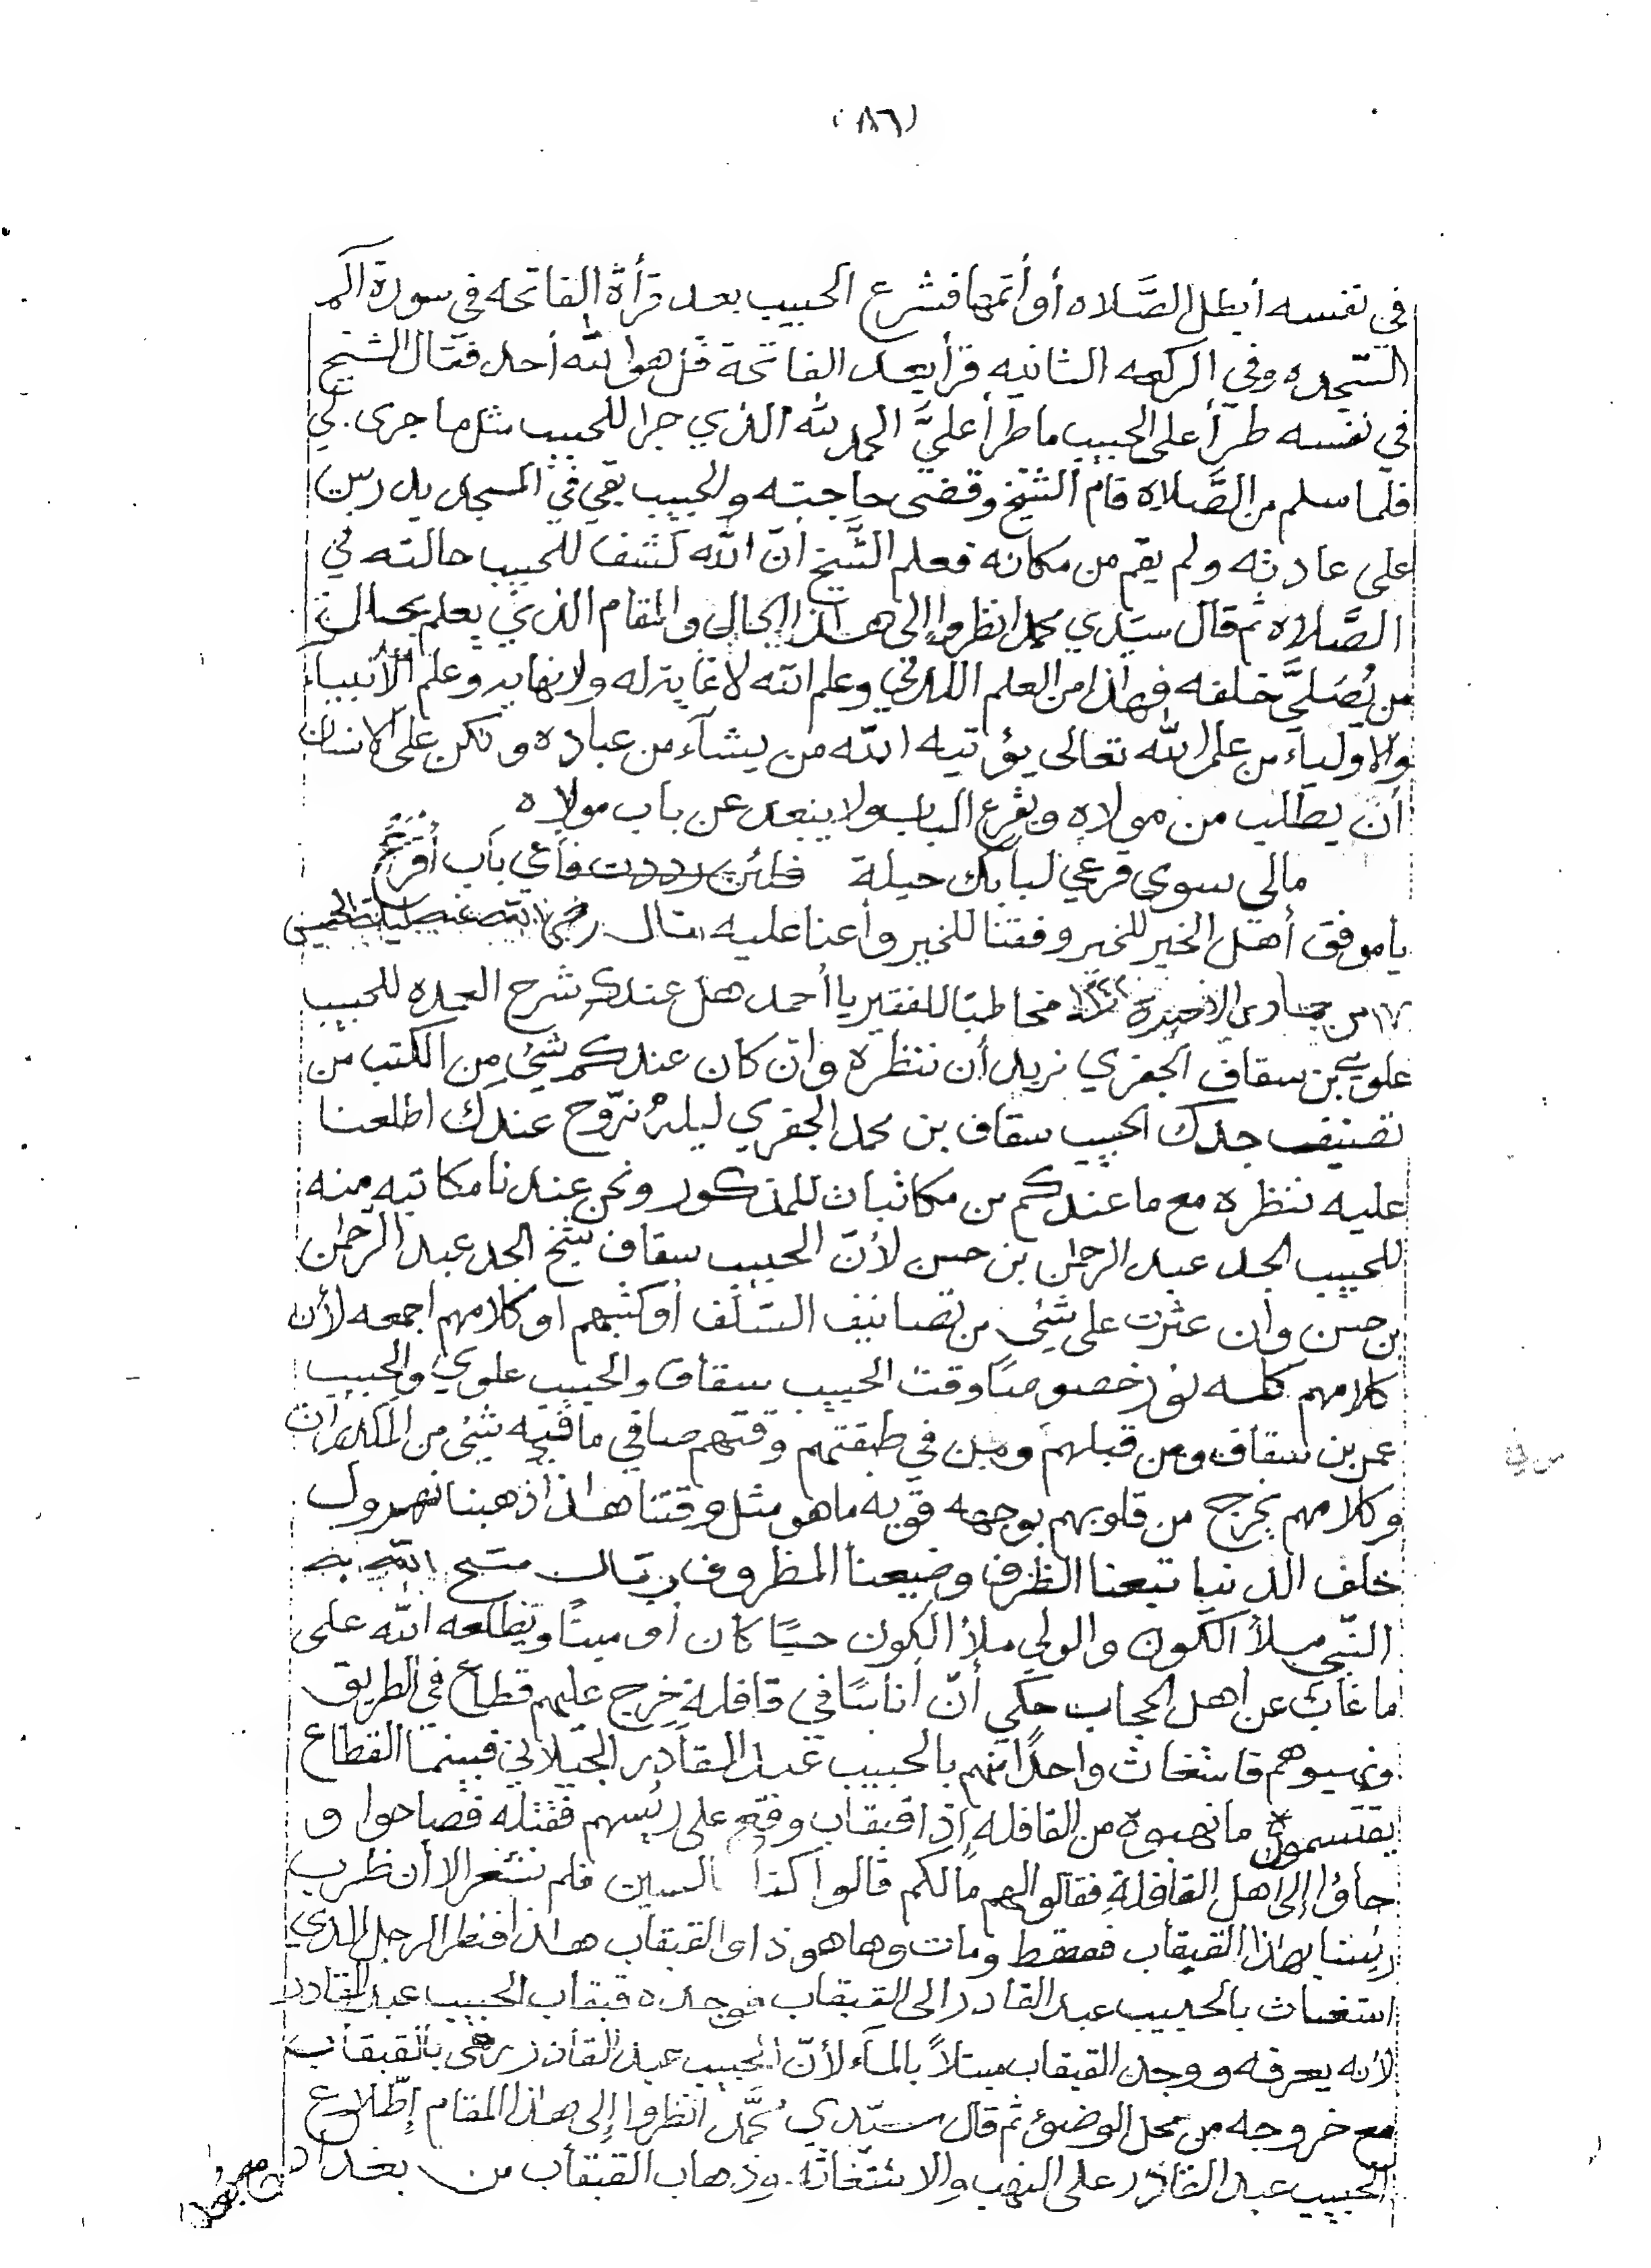 (١٨٦)
في نفسه أبطل الصَّلاه أو أتمها فشرع الحبيب بعد قرأة الفاتحه في سورة الم
السّجده وفي الركعه الثانيه قرأ بعد الفاتحة قل هو الله أحد فقال الشيخ
في نفسه طرأ على الحبيب ما طرأ عليَّ الحمد لله الذي جرا للحبيب مثل ما جرى لي
فلما سلم من الصَّلاه قام الشيخ وقضى حاجته والحبيب بقي في المسجد يدرس
على عادته ولم يقم من مكانه فعلم الشَّيخ أنّ الله كشف للحبيب حالته في
الصَّلاه ثم قال سيّدي محمد انظروا إلى هذا الحال والمقام الذي يعلم بحال
من يُصَليَّ خلفه فهاذا من العلم اللدني وعلم الله لا غاية له ولا نهايه وعلم الأنبياء
والاولياء من علم الله تعالى يؤتيه الله من يشآء من عباده ولكن على الانسان
أن يطلب من مولاه ويقرع الباب ولا يبعد عن باب مولاه
مالي سوى قرعي لبابك حيلة فلئن رددت فأي باب أقرع
يا موفق أهل الخير للخير وفقنا للخير وأعنا عليه وقال رضي الله عنه
١٧ من جمادى الاخيرة مخاطبًا للفقير يا أحمد هل عندكم شرح العمده للحبيب
علوي بن سقاف الجفري نريد أن ننظره وان كان عندكم شيئ من الكتب من
تصنيف جدك الحبيب سقاف بن محمد الجفري ليلة نروّح عندك اطلعنا
عليه ننظره مع ما عندكم من مكاتبات للمذكور ونحن عندنا مكاتبه منه
للحبيب الجد عبد الرحمن بن حسن لأنّ الحبيب سقاف شيخ الجد عبد الرحمن
بن حسن وان عثرت على شيئ من تصانيف السّلف أو كتبهم أو كلامهم اجمعه لأن
كلامهم كله نور خصوصًا وقت الحبيب سقاف والحبيب علوي والحبيب
عمر بن سقاف ومن قبلهم ومن في طبقتهم وقتهم صافي ما فيه شيئ من المكدرات
وكلامهم يخرج من قلوبهم بوجهه قويه ما هو مثل وقتنا هاذا ذهبنا نهرول
خلف الدنيا تبعنا الظرف وضيعنا المظروف وقال متع الله به
النّبي ملأ الكون والولي ملأ الكون حيًا كان أو ميتًا ويطلعه الله على
ما غاب عن اهل الحجاب حكي أنّ أناسًا في قافلة خرج عليهم قطاع في الطريق
ونهبوهم فاستغاث واحدًا منهم بالحبيب عبد القادر الجيلاني فبينما القطاع
يقتسمون ما نهبوه من القافله إذا قبقاب وقع على رئيسهم فقتله فصاحوا و
جاؤا إلى أهل القافلة فقالوا لهم مالكم قالوا كنا جالسين فلم نشعر الا أن ظرب
رئيسنا بهاذا القبقاب فسقط ومات وها هو ذا القبقاب هاذا فنظر الرجل الذي
استغاث بالحبيب عبد القادر إلى القبقاب فوجده قبقاب الحبيب عبد القادر
لأنه يعرفه ووجد القبقاب مبتلاً بالمآء لأنّ الحبيب عبد القادر رمى بالقبقاب
مع خروجه من محل الوضوء ثم قال سيّدي مُحمَّد انظروا إلى هذا المقام إطّلاع
الحبيب عبد القادر على النهب والاستغاثه وذهاب القبقاب من بغداد